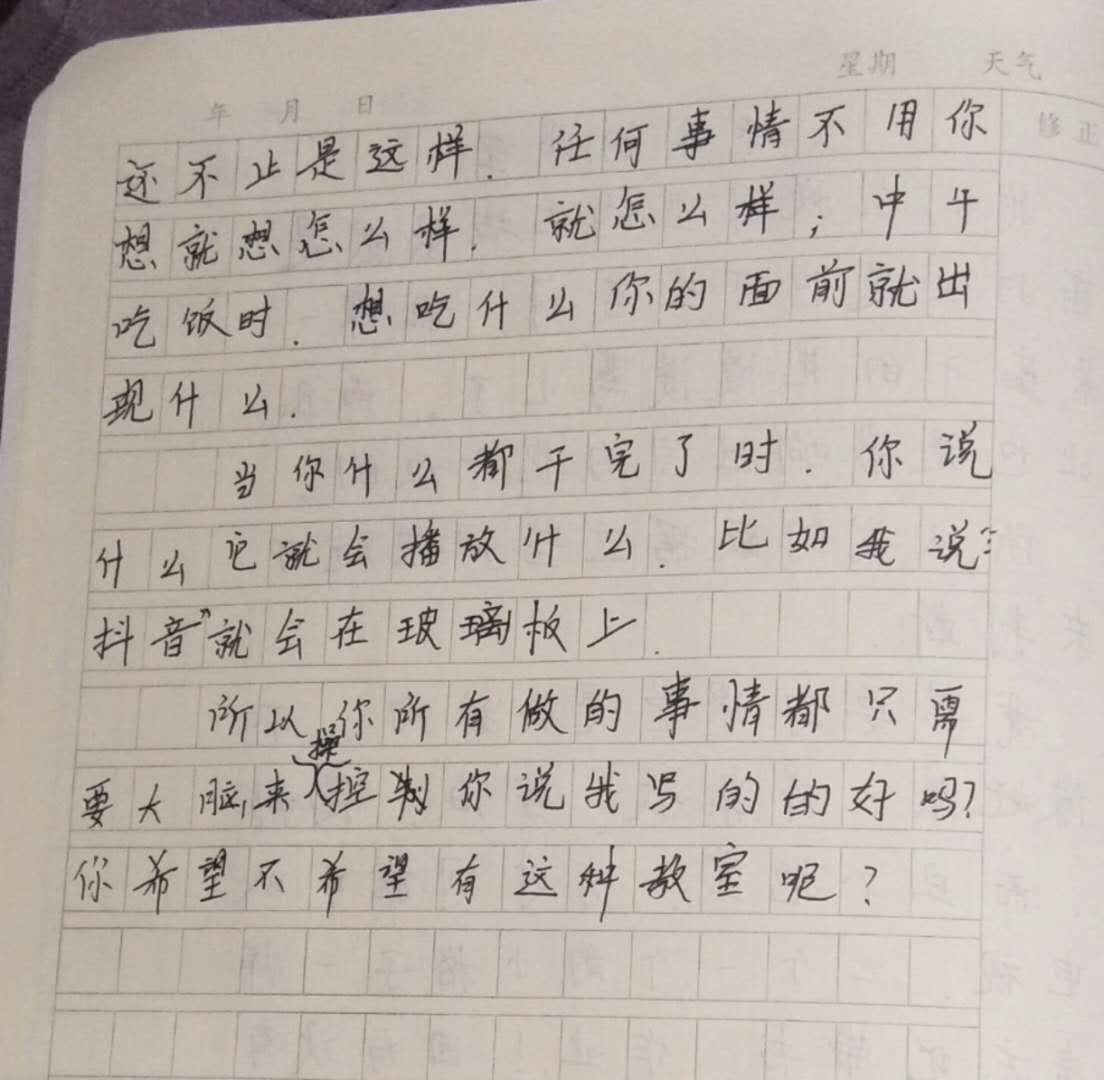 年 月 日 星期 天气
修正
还不止是这样.任何事情不用你
想就想怎么样.就怎么样;中午
吃饭时.想吃什么你的面前就出
现什么.
当你什么都干完了时.你说
什么它就会播放什么.比如我说:“
抖音”就会在玻璃板上.
所以你所有做的事情都只需
要大脑来操控制你说我写的的好吗?
你希望不希望有这种教室呢?